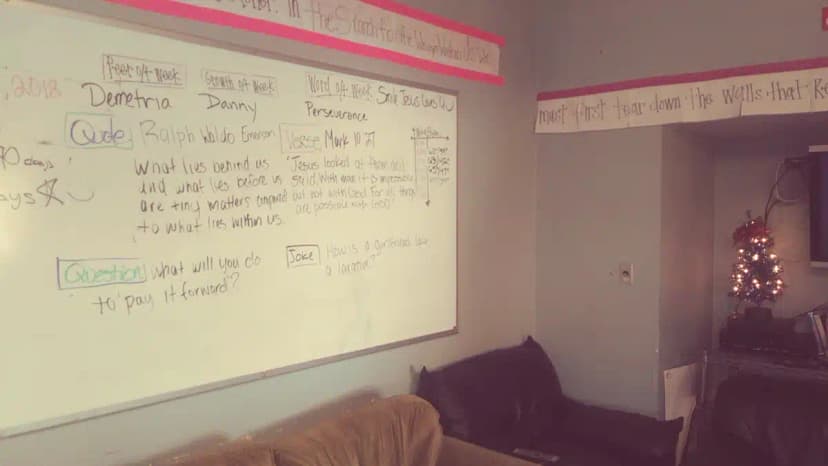 in the Search for the
must first tear down the walls that
, 2018
Peer of Week
Growth of Week
Word of Week
Smile Jesus Loves U
Demetria
Danny
Perseverance
Quote
Ralph Waldo Emerson
Verse
Mark 10:27
days
ays
What lies behind us
and what lies before us
are tiny matters compared
to what lies within us.
"Jesus looked at them and
said, With man it is impossible
but not with God. For all things
are possible with God."
Question
What will you do
to "pay it forward"?
Joke
How is a girlfriend like
a